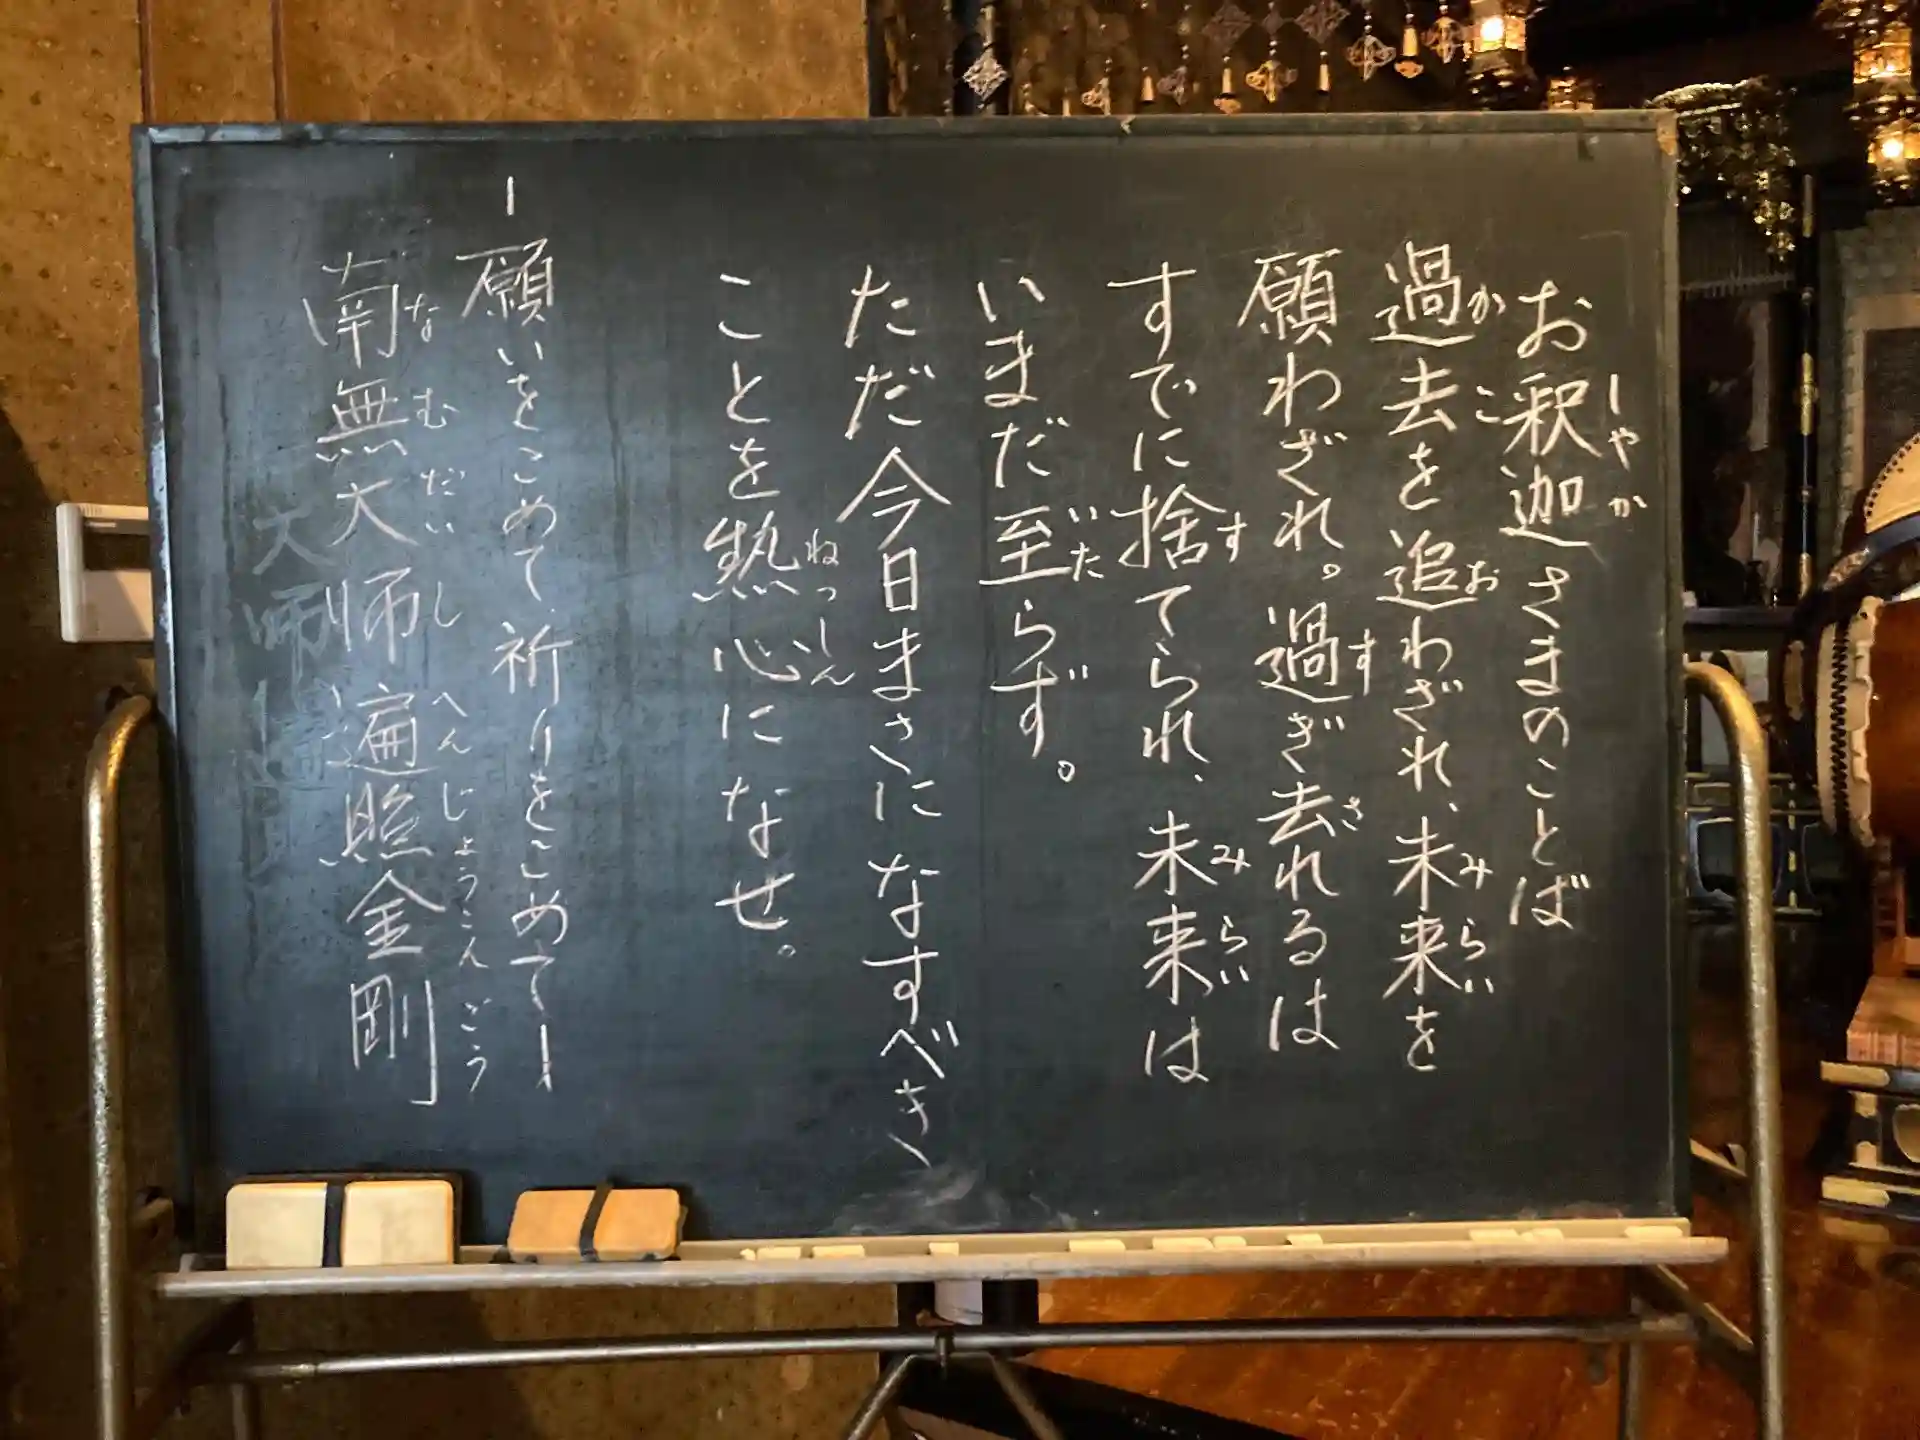 お釈迦さまのことば
過去を追わざれ、未来を
願わざれ。過ぎ去れるは
すでに捨てられ、未来は
いまだ至らず。
ただ今日まさになすべき
ことを熱心になせ。
ー願いをこめて、祈りをこめてー
南無大師遍照金剛